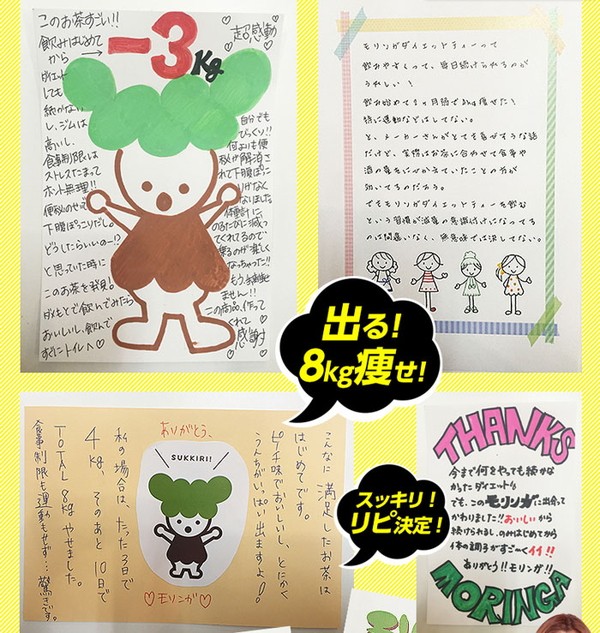 このお茶すごい!!
飲みはじめて
から→
-3Kg
♡超感動♡
ダイエット
しても
続かない
し、ジムは
高いし、
食事制限は
ストレスたまって
ホント無理!!
便秘のせいで
下腹ぽっこりだし。
どうしたらいいの—!?
と思っていた時に
このお茶を発見。
ダメもとで飲んでみたら
おいしいし、飲んで
すぐにトイレへ♡
自分でも
びっくり!!
何よりも便
秘が解消さ
れて下腹ぽっこ
りがなく
なりました。
体重計に
のるたびに減っ
てくれてるので
乗るのが楽しく
なっちゃった!!
もう手放せ
ません!!
この商品、作って
くれて
♡感謝♡
モリンガダイエットティーって
飲みやすくって、毎日続けられるのが
うれしい!
飲み始めて2ヶ月弱で3kg痩せた!
特に運動などはしてない。
と、メーカーさんがとても喜びそうな話
だけど、実際はお茶に合わせて食事や
酒の量を気にかけていたことの方が
効いてるのだろう。
でもモリンガダイエットティーを飲む
という習慣が減量の意識付けになってる
のは間違いなく、無意味では決してない。
出る!
8kg痩せ!
こんなに満足したお茶は
はじめてです。
ピーチ味でおいしいし、とにかく
うんちがいっぱい出ますよ!○
ありがとう、
SUKKIRI!
♡モリンガ♡
私の場合は、たった3日で
4kg、そのあと10日で
TOTAL 8kgやせました。
食事制限も運動もせず…驚きです。
スッキリ!
リピ決定!
THANKS
今まで何をやっても続かな
かったダイエット!!
でも、このモリンガに出会って
かわりました!!おいしいから
続けられるし、のみはじめてから
体の調子がすごーくイイ!!
ありがとう!!モリンガ!!
MORINGA